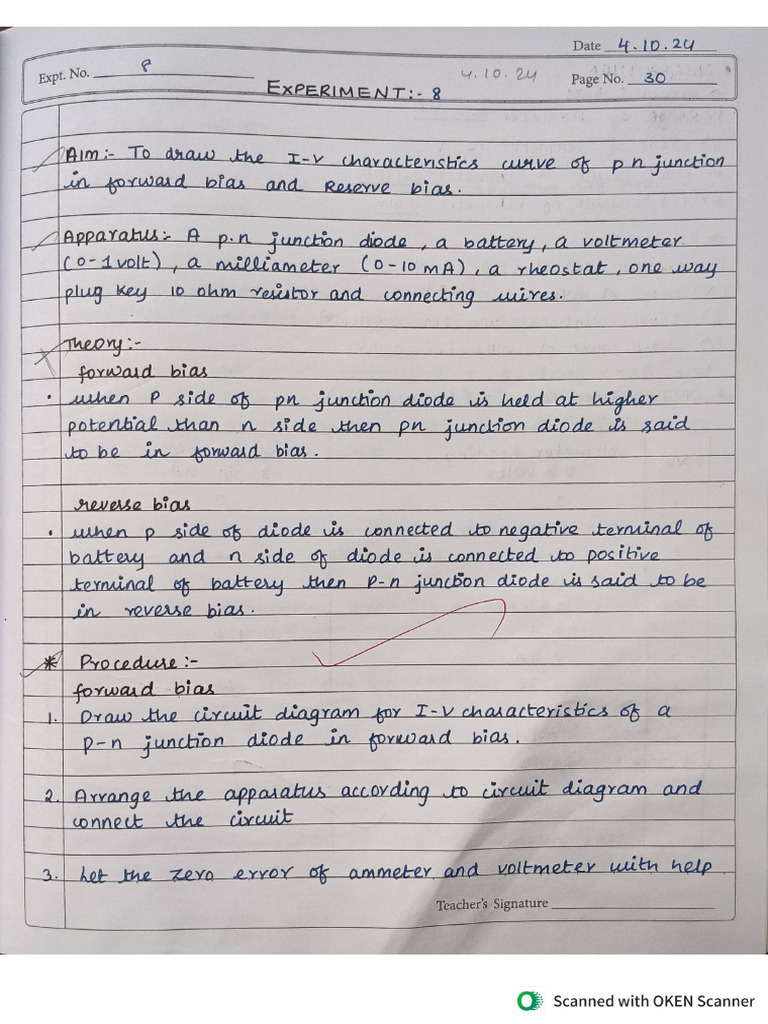 Date 4.10.24
Expt. No. 8
4.10.24
Page No. 30
EXPERIMENT:- 8
Aim:- To draw the I-V characteristics curve of p n junction
in forward bias and Reserve bias.
Apparatus:- A p.n junction diode, a battery, a voltmeter
(0-1 volt), a milliameter (0-10 mA), a rheostat, one way
plug key 10 ohm resistor and connecting wires.
Theory:-
forward bias
• when P side of pn junction diode is held at higher
potential than n side then pn junction diode is said
to be in forward bias.
reverse bias
• when p side of diode is connected to negative terminal of
battery and n side of diode is connected to positive
terminal of battery then P-n junction diode is said to be
in reverse bias.
* Procedure:-
forward bias
1. Draw the circuit diagram for I-V characteristics of a
p-n junction diode in forward bias.
2. Arrange the apparatus according to circuit diagram and
connect the circuit
3. Let the zero error of ammeter and voltmeter with help
Teacher's Signature
Scanned with OKEN Scanner